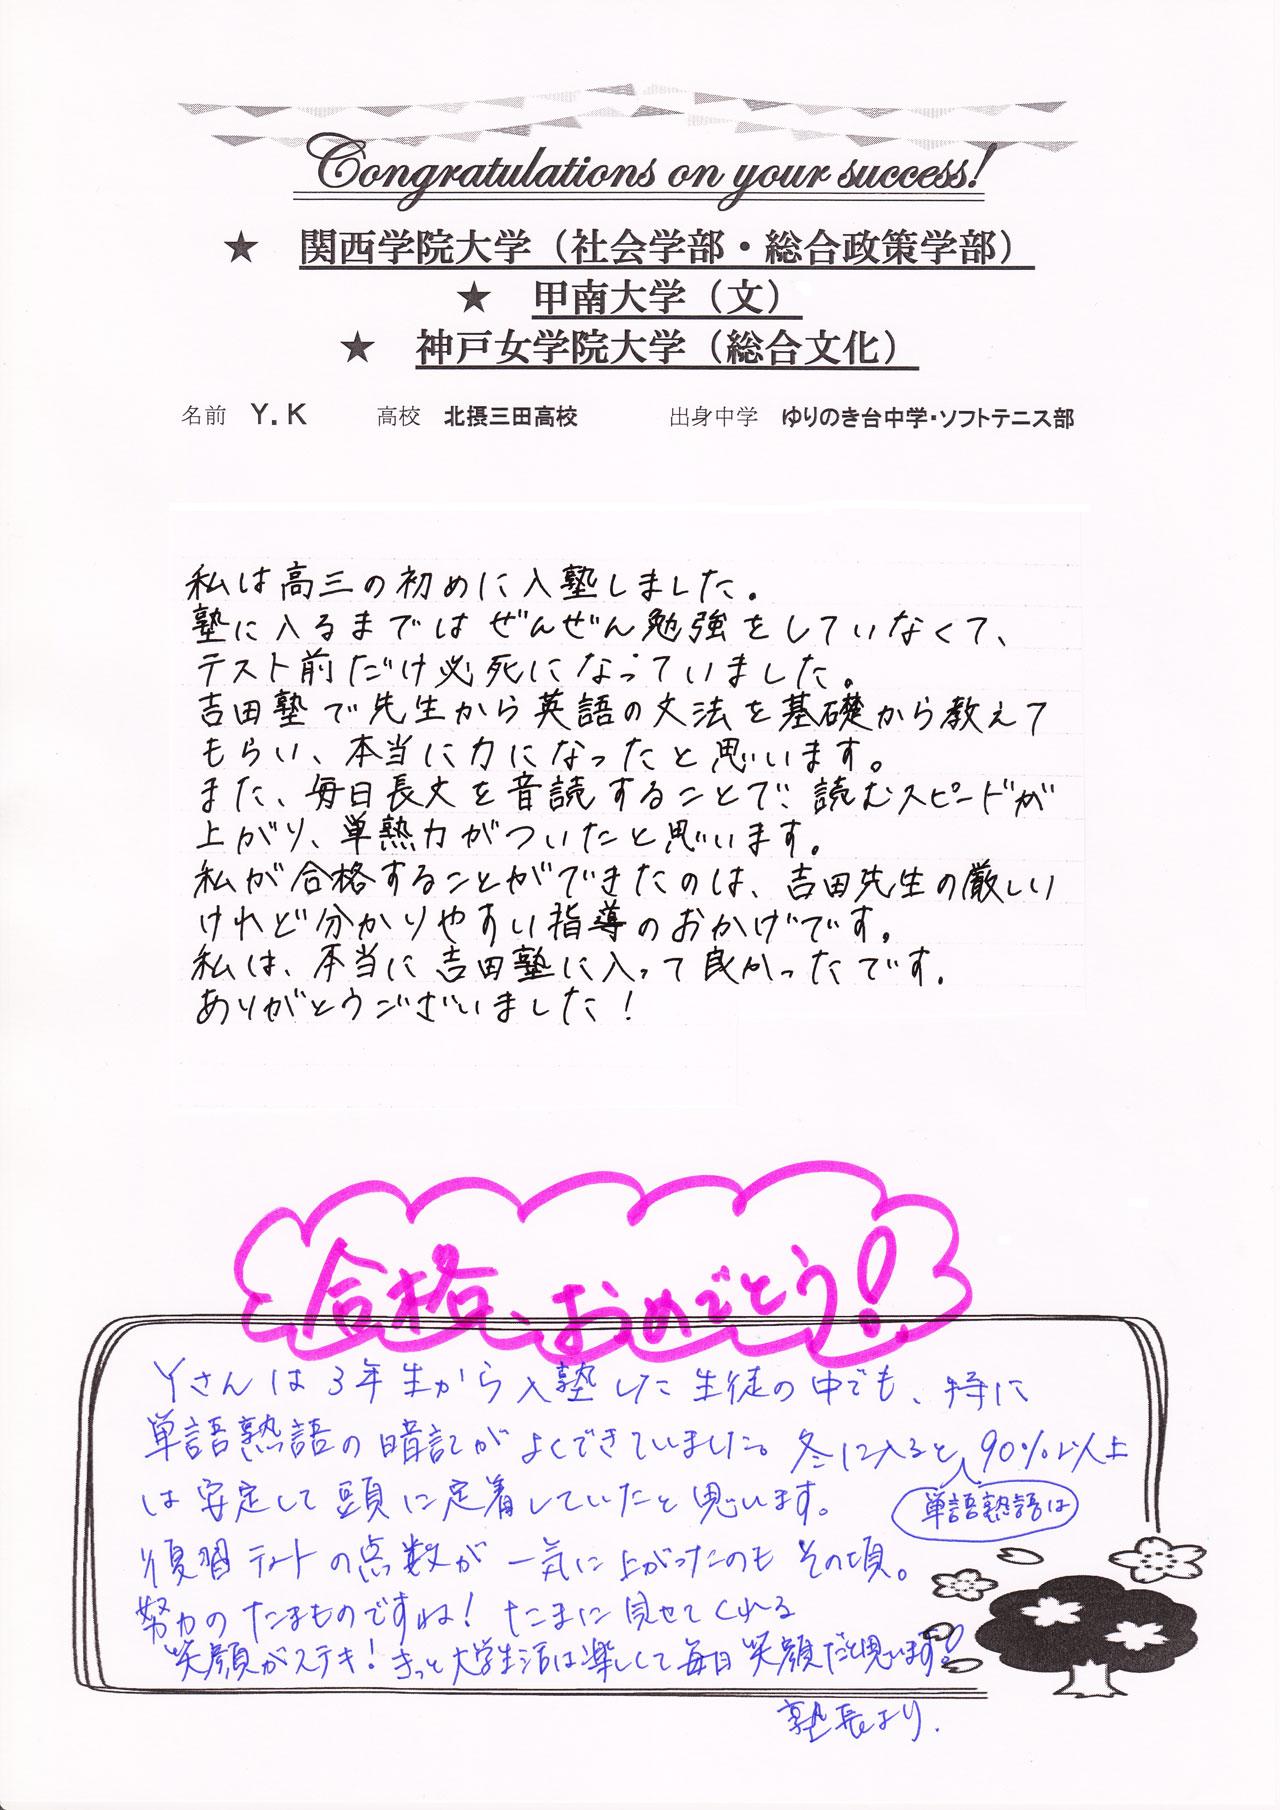 Congratulations on your success!
★ 関西学院大学（社会学部・総合政策学部）
★ 甲南大学（文）
★ 神戸女学院大学（総合文化）
名前 Y.K 高校 北摂三田高校 出身中学 ゆりのき台中学・ソフトテニス部
私は高三の初めに入塾しました。
塾に入るまではぜんぜん勉強をしていなくて、
テスト前だけ必死になっていました。
吉田塾で先生から英語の文法を基礎から教えて
もらい、本当に力になったと思います。
また、毎日長文を音読することで、読むスピードが
上がり、単熟力がついたと思います。
私が合格することができたのは、吉田先生の厳しい
けれど分かりやすい指導のおかげです。
私は、本当に吉田塾に入って良かったです。
ありがとうございました！
合格、おめでとう！
Yさんは3年生から入塾した生徒の中でも、特に
単語熟語の暗記がよくできていました。冬に入ると、90％以上
単語熟語は
は安定して頭に定着していたと思います。
復習テストの点数が一気に上がったのもその頃。
努力のたまものですね！たまに見せてくれる
笑顔がステキ！きっと大学生活は楽しくて毎日笑顔だと思います！
塾長より.